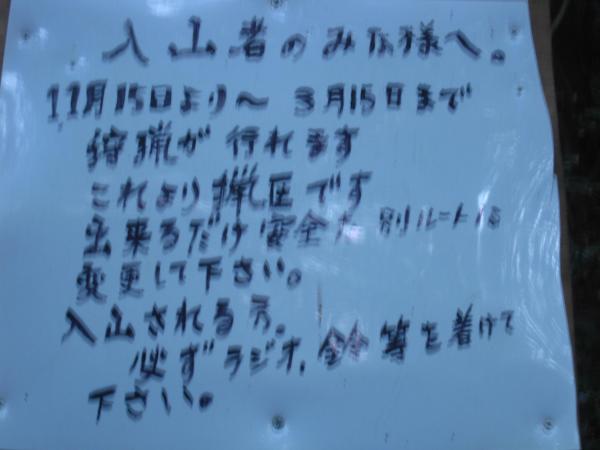 入山者のみな様へ。
11月15日より〜 3月15日まで
狩猟が行れます
これより猟区です
出来るだけ安全な別ルートに
変更して下さい。
入山される方。
必ずラジオ、鈴等を着けて
下さい。